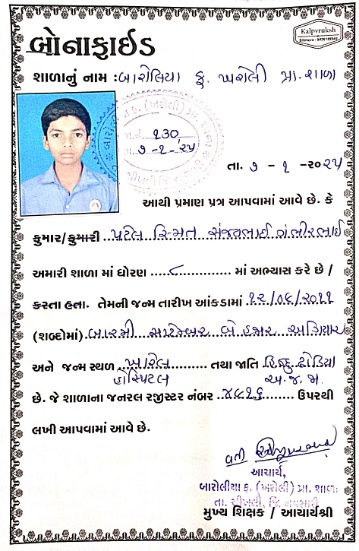 Kalpvruksh
બોનાફાઈડ
શાળાનું નામ : બારોલિયા ક. ખરોલી પ્રા. શાળા
૧૩૦
૭-૧-૨૫
તા. ૭ - ૧ - ૨૦૨૫
આથી પ્રમાણ પત્ર આપવામાં આવે છે. કે
કુમાર/કુમારી પટેલ સ્મિત સંજયભાઈ ગંભીરભાઈ
અમારી શાળા માં ધોરણ ૮ માં અભ્યાસ કરે છે /
કરતા હતા. તેમની જન્મ તારીખ આંકડામાં ૧૨/૦૯/૨૦૧૧
(શબ્દોમાં) બારમી સપ્ટેમ્બર બે હજાર અગિયાર
અને જન્મ સ્થળ ખારેલ તથા જાતિ હિન્દુ ધોડિયા
હોસ્પિટલ અ.જ.જા.
છે. જે શાળાના જનરલ રજીસ્ટર નંબર ૪૮૧૬ ઉપરથી
લખી આપવામાં આવે છે.
આચાર્ય,
બારોલીયા ક. (ખરોલી) પ્રા. શાળા
તા. ચીખલી, જિ. નવસારી
મુખ્ય શિક્ષક / આચાર્યશ્રી